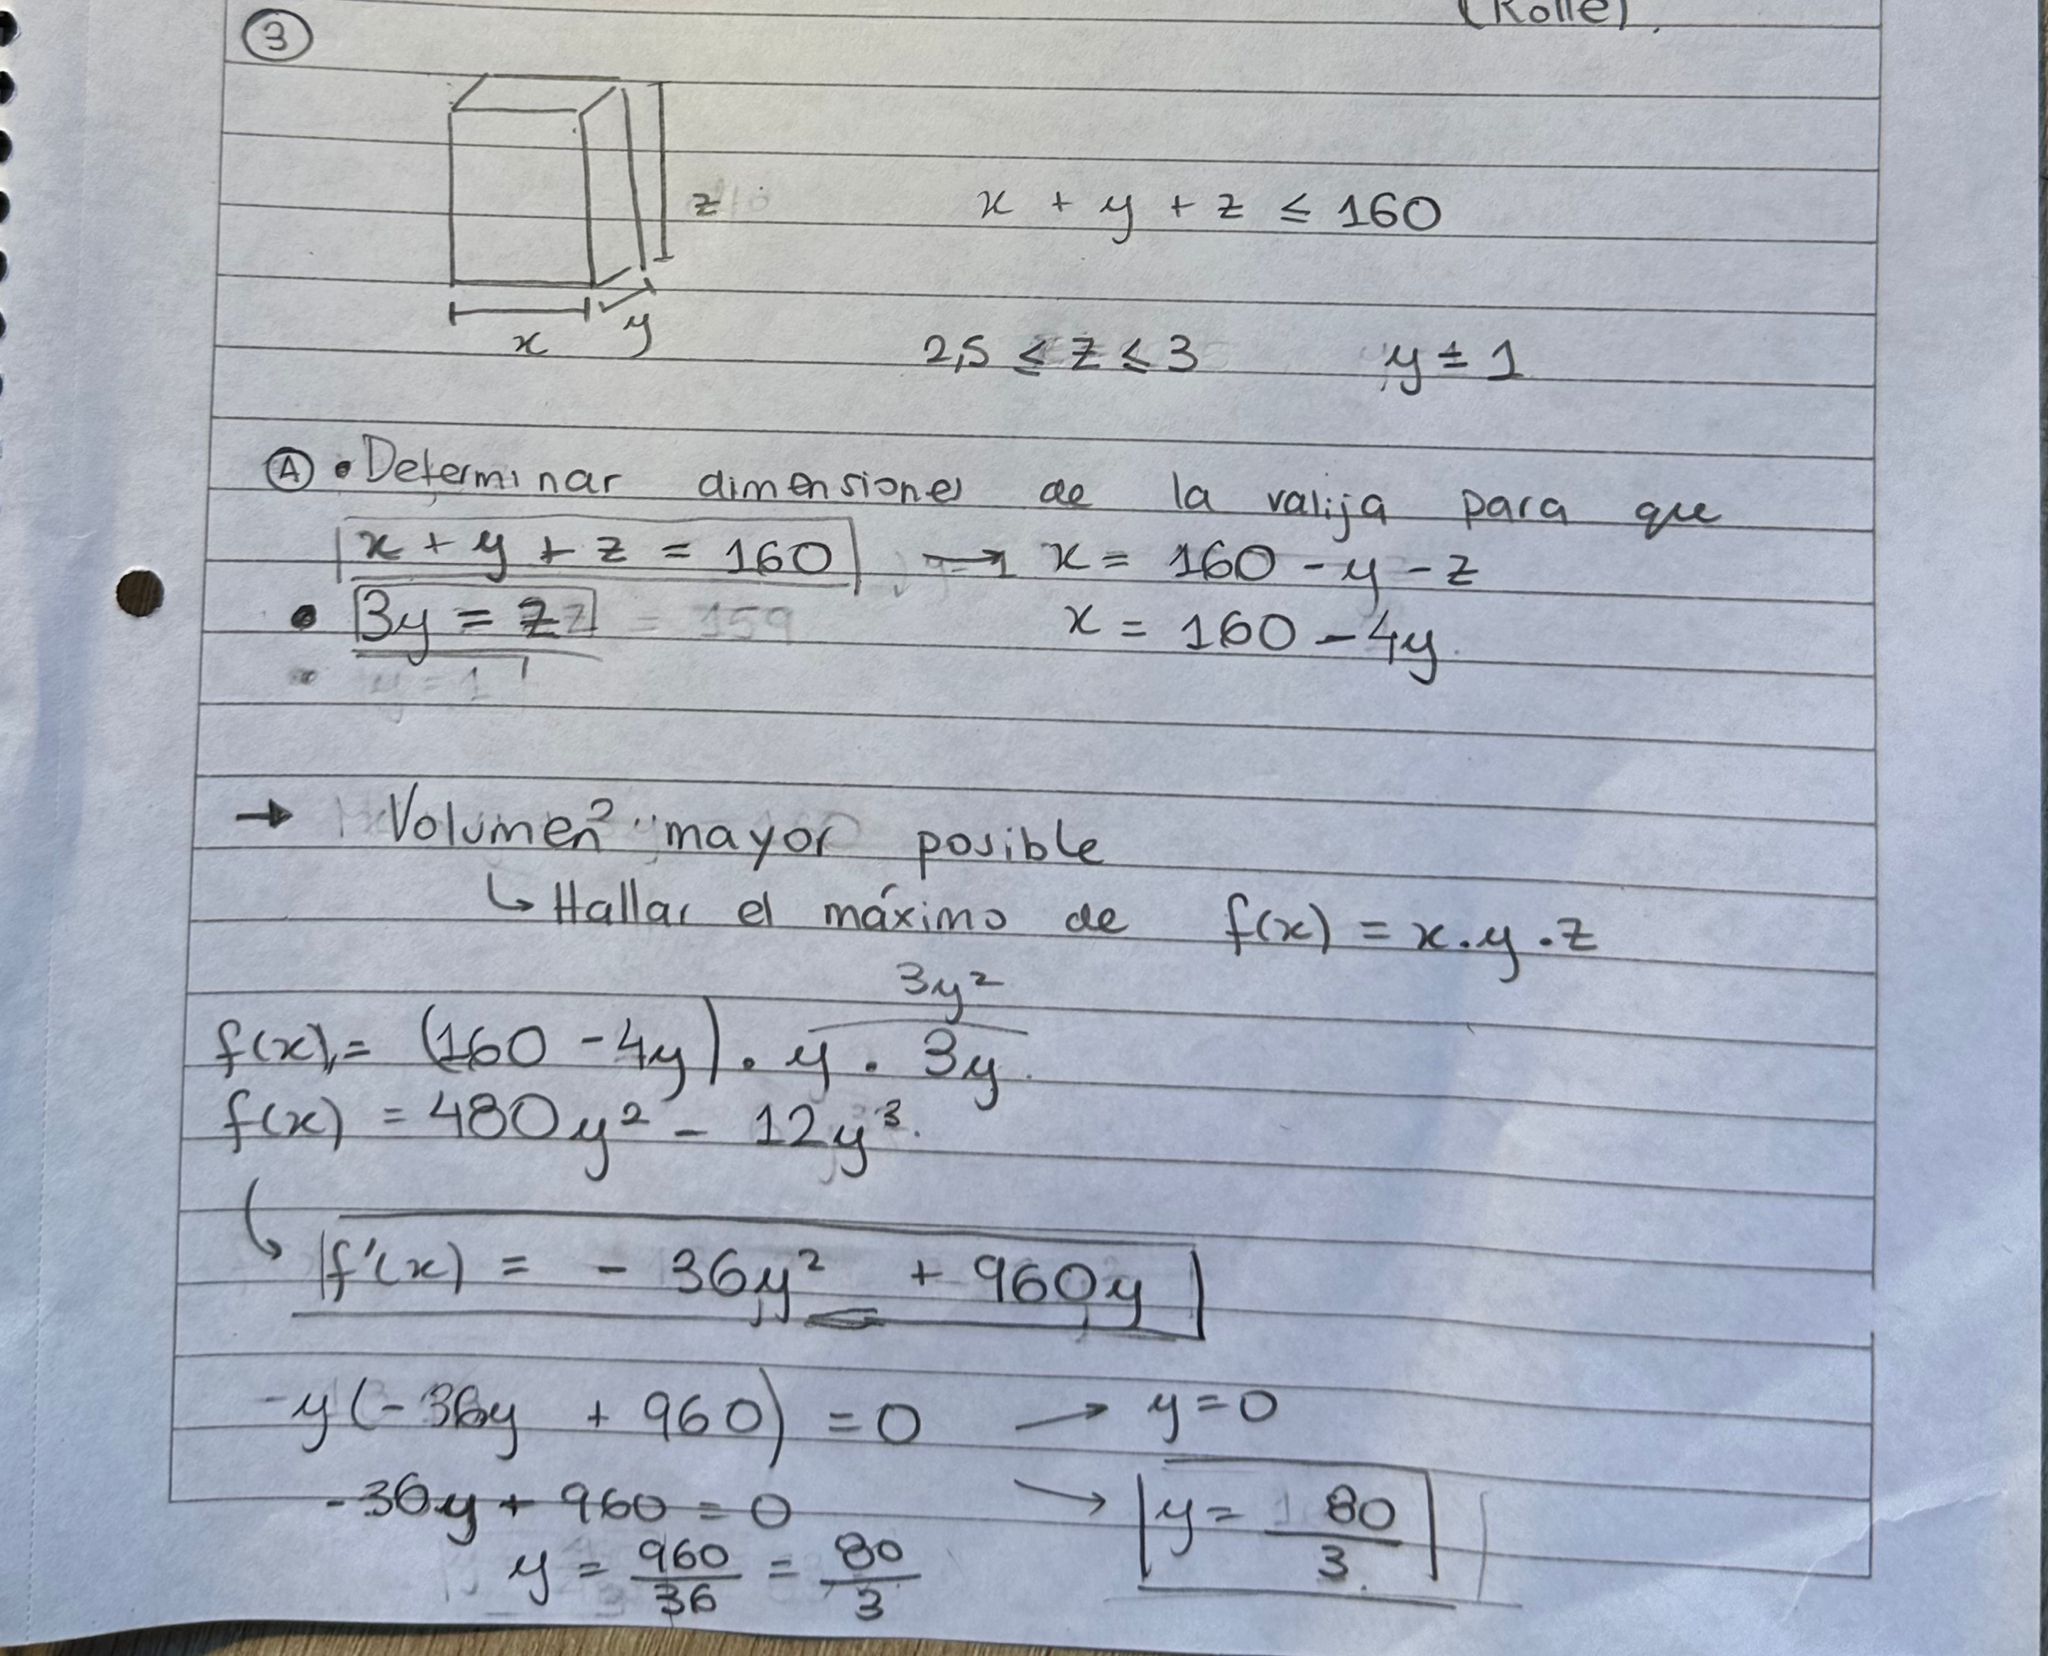 (Rolle).
3
z
x + y + z ≤ 160
x y
2,5 ≤ z ≤ 3 y ± 1
A • Determinar dimensiones de la valija para que
x + y + z = 160 → x = 160 - y - z
• 3y = z = 159 x = 160 - 4y
• y = 1
→ Volumen mayor posible
↳ Hallar el máximo de f(x) = x . y . z
3y²
f(x) = (160 - 4y) . y . 3y
f(x) = 480y² - 12y³.
↳ f'(x) = - 36y² + 960y
-y(-36y + 960) = 0 → y = 0
-36y + 960 = 0 → y = 80/3
y = 960/36 = 80/3